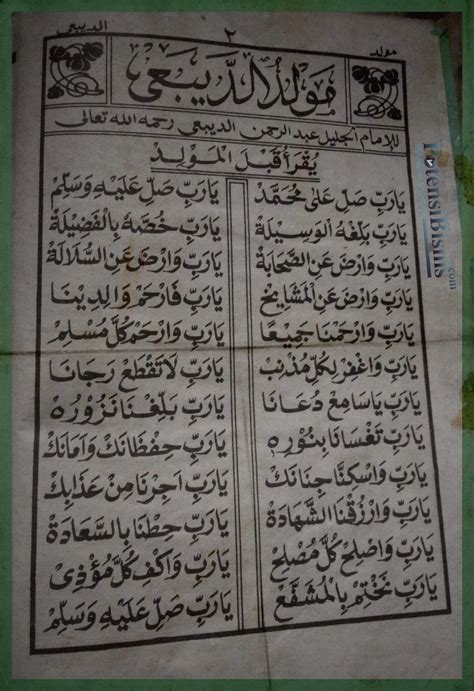 مولد ٢ الديبعى
مَوْلِدُ الدِّيْبَعِى
للامام الجليل عبد الرحمن الديبعى رحمه الله تعالى
يُقْرَأُ قَبْلَ الْمَوْلِدْ
يَارَبِّ صَلِّ عَلَى مُحَمَّدْ يَارَبِّ صَلِّ عَلَيْهِ وَسَلِّمْ
يَارَبِّ بَلِّغْهُ الْوَسِيْلَةْ يَارَبِّ خُصَّهُ بِالْفَضِيْلَةْ
يَارَبِّ وَارْضَ عَنِ الصَّحَابَةْ يَارَبِّ وَارْضَ عَنِ السُّلَالَةْ
يَارَبِّ وَارْضَ عَنِ الْمَشَايِخْ يَارَبِّ فَارْحَمْ وَالِدِيْنَا
يَارَبِّ وَارْحَمْنَا جَمِيْعًا يَارَبِّ وَارْحَمْ كُلَّ مُسْلِمْ
يَارَبِّ وَاغْفِرْ لِكُلِّ مُذْنِبْ يَارَبِّ لَا تَقْطَعْ رَجَانَا
يَارَبِّ يَاسَامِعْ دُعَانَا يَارَبِّ بَلِّغْنَا نَزُوْرُهْ
يَارَبِّ تَغْشَانَا بِنُوْرِهْ يَارَبِّ حِفْظَانَكْ وَاَمَانَكْ
يَارَبِّ وَاسْكِنَّا جِنَانَكْ يَارَبِّ اَجِرْنَا مِنْ عَذَابِكْ
يَارَبِّ وَارْزُقْنَا الشَّهَادَةْ يَارَبِّ حِطْنَا بِالسَّعَادَةْ
يَارَبِّ وَاصْلِحْ كُلَّ مُصْلِحْ يَارَبِّ وَاكْفِ كُلَّ مُؤْذِى
يَارَبِّ نَخْتِمْ بِالْمُشَفَّعْ يَارَبِّ صَلِّ عَلَيْهِ وَسَلِّمْ
PotensiBisnis.com